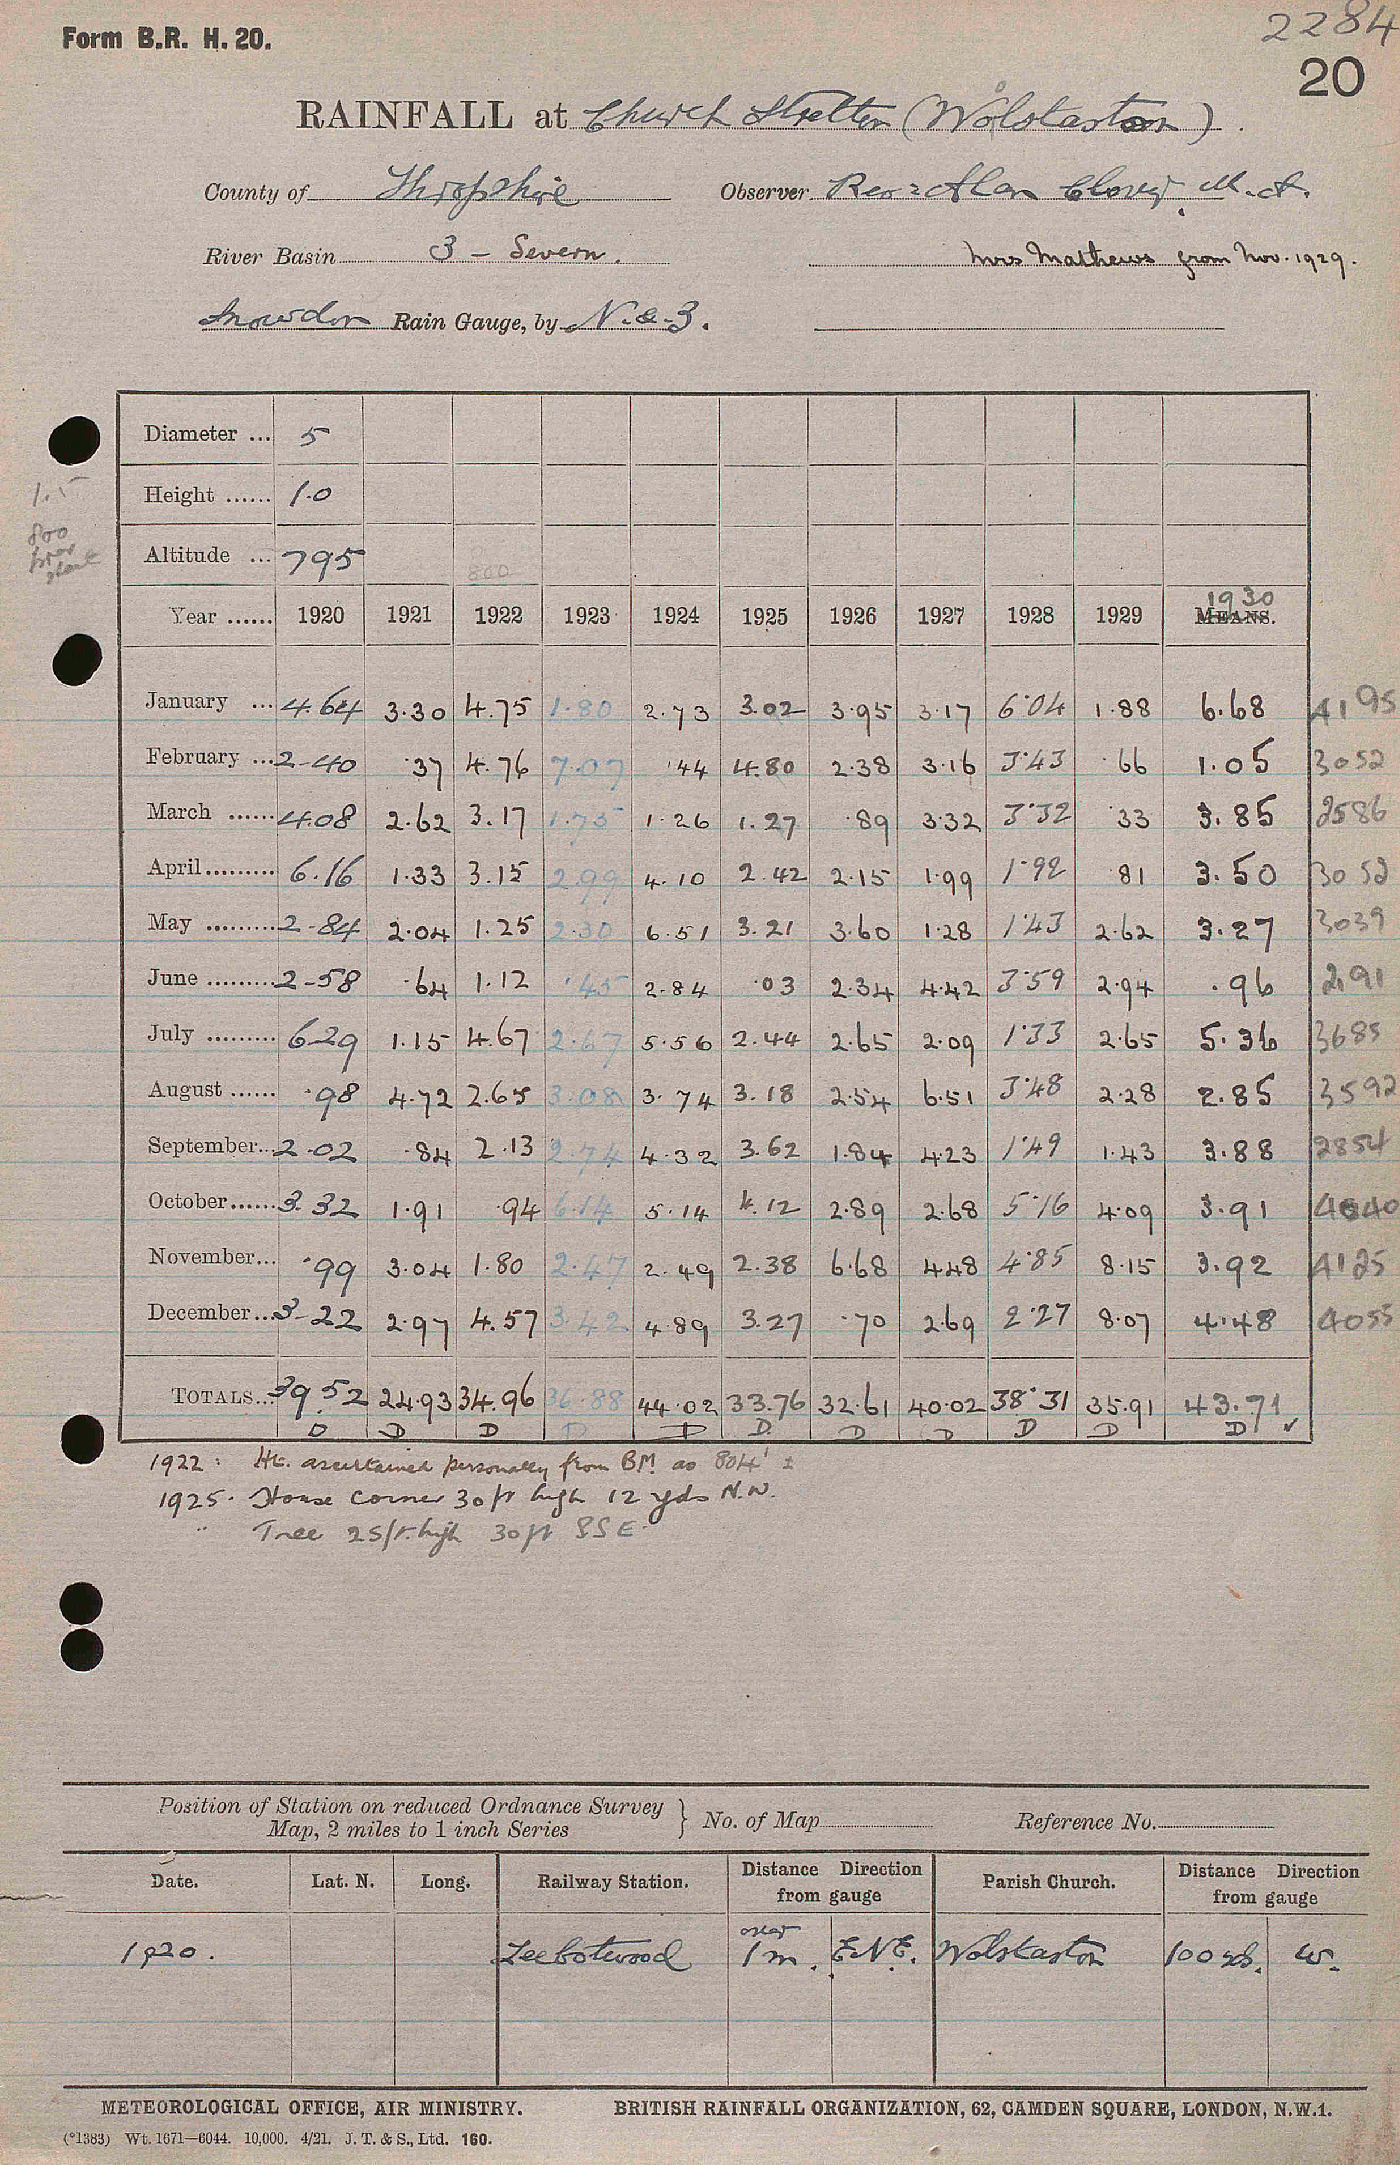 Form B.R. H. 20.
2284
20
RAINFALL at Church Stretton (Wolstaston)
County of Shropshire Observer Rev. Alan Clover, M.A.
River Basin 3 - Severn. Mrs Mathews from Nov. 1929.
Snowdon Rain Gauge, by N. & Z.
Diameter ... 5
Height ...... 1.0
1.5
Altitude ... 795
800
800
Year ...... 1920 1921 1922 1923 1924 1925 1926 1927 1928 1929 MEANS. 1930
January ... 4.64 3.30 4.75 1.80 2.73 3.02 3.95 3.17 6.04 1.88 6.68 4195
February ... 2.40 .37 4.76 7.07 .44 4.80 2.38 3.16 3.43 .66 1.05 3052
March ...... 4.08 2.62 3.17 1.75 1.26 1.27 .89 3.32 3.32 .33 3.85 2586
April ......... 6.16 1.33 3.15 2.99 4.10 2.42 2.15 1.99 1.92 81 3.50 3052
May ......... 2.84 2.04 1.25 2.30 6.51 3.21 3.60 1.28 1.43 2.62 3.27 3039
June ......... 2.58 .64 1.12 .45 2.84 .03 2.34 4.42 3.59 2.94 .96 2191
July ......... 6.29 1.15 4.67 2.67 5.56 2.44 2.65 2.09 1.33 2.65 5.36 3685
August ...... .98 4.72 2.65 3.08 3.74 3.18 2.54 6.51 3.48 2.28 2.85 3592
September... 2.02 .84 2.13 2.74 4.32 3.62 1.84 4.23 1.49 1.43 3.88 2854
October ...... 3.32 1.91 .94 6.14 5.14 4.12 2.89 2.68 5.16 4.09 3.91 4040
November... .99 3.04 1.80 2.47 2.49 2.38 6.68 4.48 4.85 8.15 3.92 4125
December... 3.22 2.97 4.57 3.42 4.89 3.27 .70 2.69 2.27 8.07 4.48 4055
TOTALS... 39.52 24.93 34.96 36.88 44.02 33.76 32.61 40.02 38.31 35.91 43.71
D D D D D D D D D D D ✓
1922: Ht. ascertained personally from BM. as 804' ±
1925. House corner 30 ft high 12 yds N.W.
" Tree 25 ft. high 30 ft SSE
Position of Station on reduced Ordnance Survey Map, 2 miles to 1 inch Series } No. of Map Reference No.
Date. Lat. N. Long. Railway Station. Distance Direction from gauge Parish Church. Distance Direction from gauge
1920. Leebotwood over 1 m. E.N.E. Wolstaston 100 yds. W.
METEOROLOGICAL OFFICE, AIR MINISTRY. BRITISH RAINFALL ORGANIZATION, 62, CAMDEN SQUARE, LONDON, N.W.1.
(*1383) Wt. 1671—6044. 10,000. 4/21. J. T. & S., Ltd. 160.